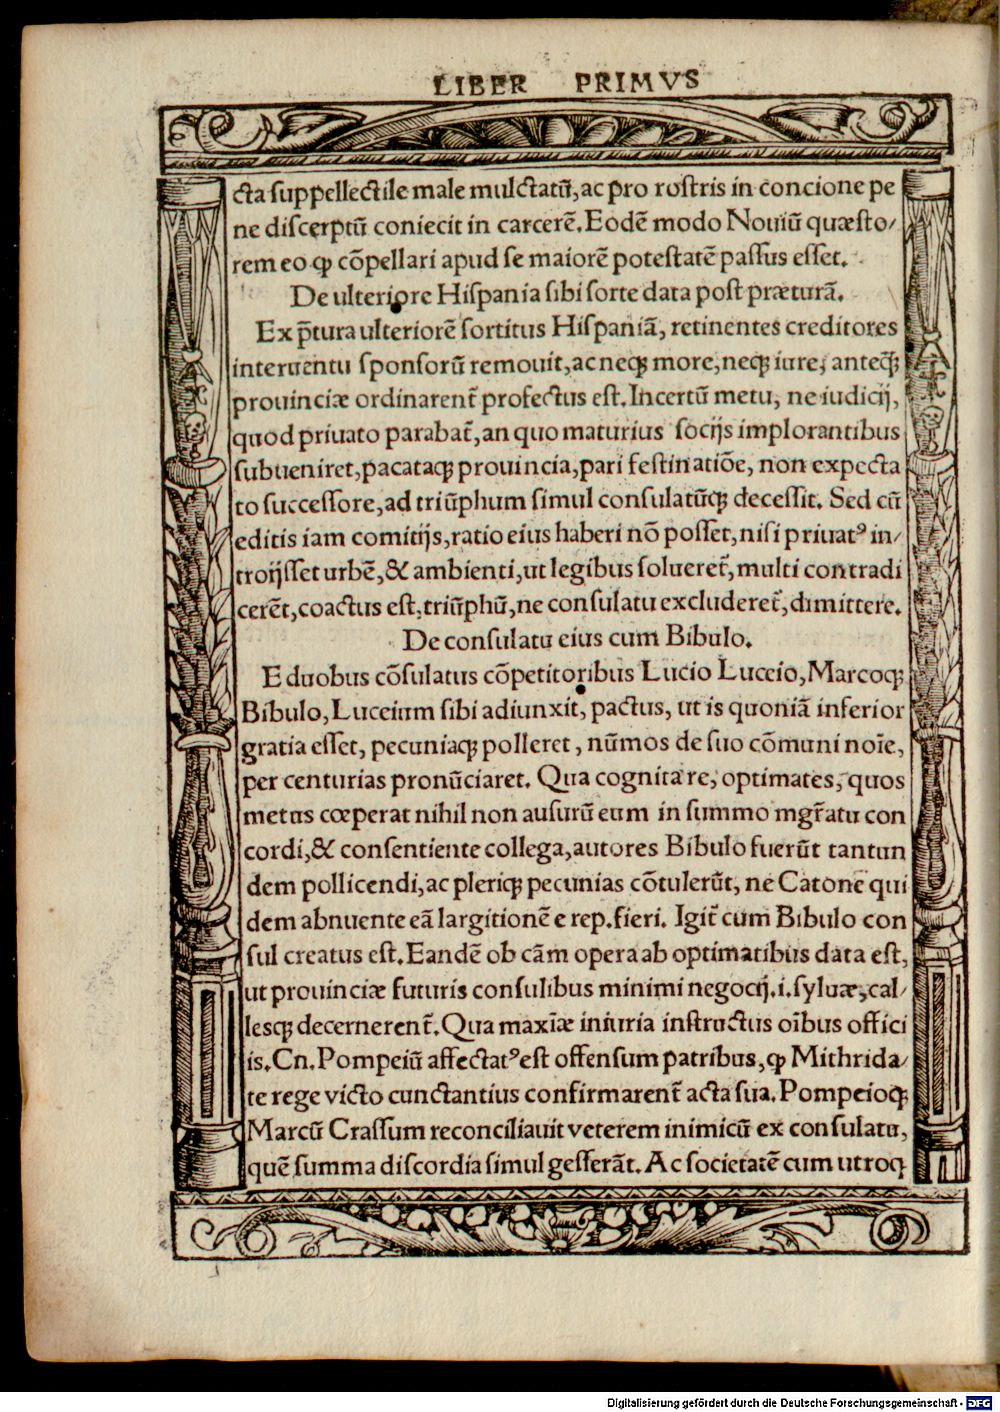 LIBER PRIMVS
cta suppellectile male mulctatū, ac pro rostris in concione pe
ne discerptū coniecit in carcerē. Eodē modo Nouiū quæsto/
rem eo ꝙ cōpellari apud se maiorē potestatē passus esset.
De ulteriore Hispania sibi sorte data post præturā.
Ex p̄tura ulteriorē sortitus Hispaniā, retinentes creditores
interuentu sponsorū remouit, ac neqꝫ more, neqꝫ iure, anteq̄ꝫ
prouinciæ ordinarent̄ profectus est. Incertū metu, ne iudicij,
quod priuato parabat̄, an quo maturius socijs implorantibus
subueniret, pacataqꝫ prouincia, pari festinatiōe, non expecta
to successore, ad triūphum simul consulatūqꝫ decessit. Sed cū
editis iam comitijs, ratio eius haberi nō posset, nisi priuatꝰ in/
troijsset urbē, & ambienti, ut legibus solueret̄, multi contradi
cerēt, coactus est, triūphū, ne consulatu excluderet̄, dimittere.
De consulatu eius cum Bibulo.
E duobus cōsulatus cōpetitoribus Lucio Lucceio, Marcoqꝫ
Bibulo, Luceium sibi adiunxit, pactus, ut is quoniā inferior
gratia esset, pecuniaqꝫ polleret, nūmos de suo cōmuni noīe,
per centurias pronūciaret. Qua cognita re, optimates, quos
metus cœperat nihil non ausurū eum in summo mgr̄atu con
cordi, & consentiente collega, autores Bibulo fuerūt tantun
dem pollicendi, ac pleriqꝫ pecunias cōtulerūt, ne Catone qui
dem abnuente eā largitionē e rep. fieri. Igit̄ cum Bibulo con
sul creatus est. Eandē ob cām opera ab optimatibus data est,
ut prouinciæ futuris consulibus minimi negocij. i. syluæ, cal/
lesqꝫ decernerent̄. Qua maxīæ iniuria instructus oībus offici
is. Cn. Pompeiū affectatꝰ est offensum patribus, ꝙ Mithrida/
te rege victo cunctantius confirmarent̄ acta sua. Pompeioqꝫ
Marcū Crassum reconciliauit veterem inimicū ex consulatu,
quē summa discordia simul gesserāt. Ac societatē cum utroqꝫ
Digitalisierung gefördert durch die Deutsche Forschungsgemeinschaft - DFG